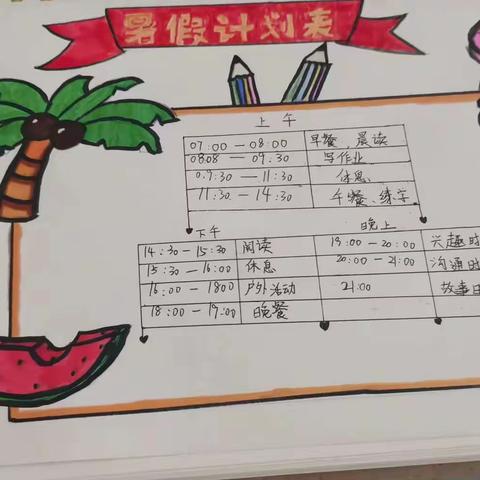 暑假计划表
上午
07:00 — 08:00 早餐、晨读
0808 — 09.30 写作业
09:30 — 11:30 休息
11:30 — 14:30 午餐、练字
下午
14:30 — 15:30 阅读
15:30 — 16:00 休息
16:00 — 1800 户外活动
18:00 — 19:00 晚餐
晚上
19:00 — 20:00 兴趣时
20:00 — 21:00 沟通时
21:00 故事